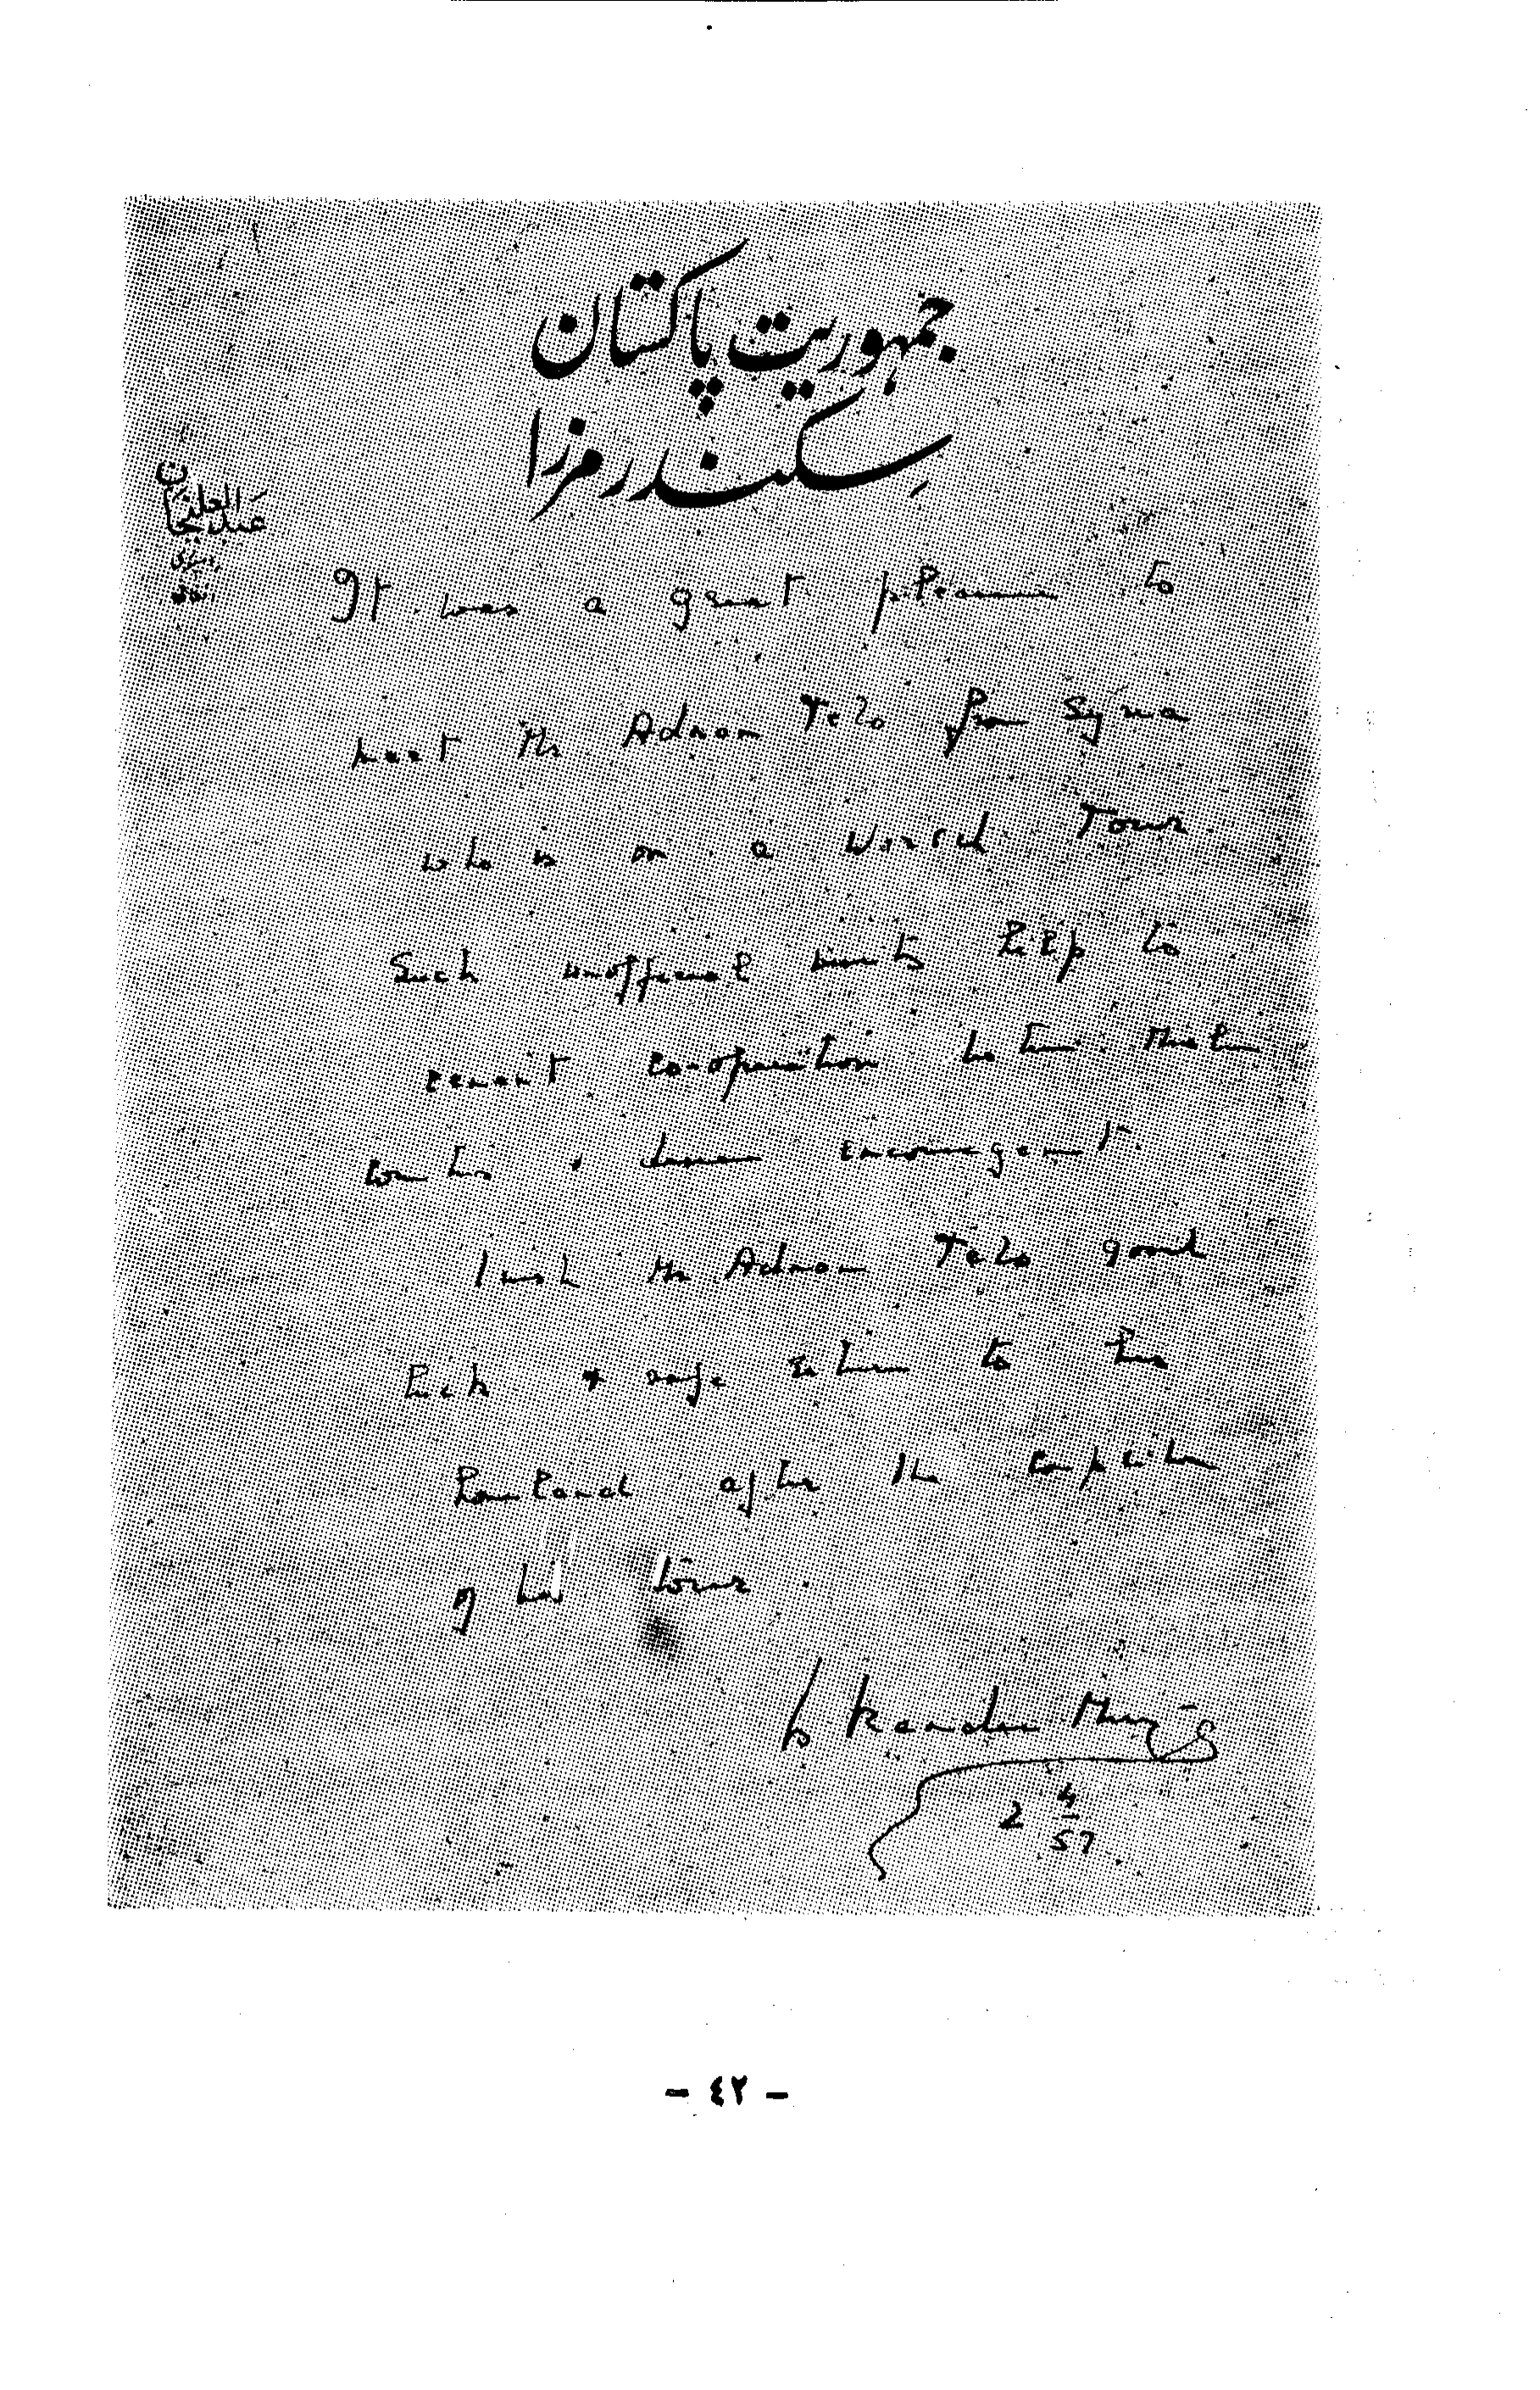 جمہوریت پاکستان
سکندر مرزا
It was a great pleasure to
meet Mr. Adnan Telo from Syria
who is on a world Tour.
Such unofficial visits help to
cement co-operation between
countries & deserve encouragement.
I wish Mr. Adnan Telo good
luck & safe return to his
homeland after the completion
of his tour.
Iskander Mirza
2 4/57
- ٤٢ -